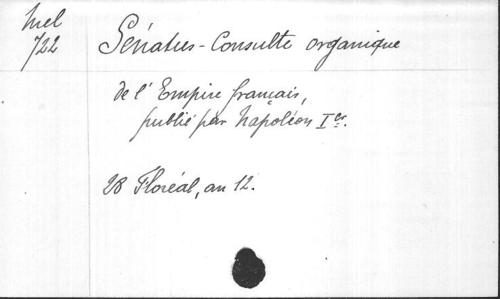 Mel
722
Sénatus-Consulte organique
de l'Empire français,
publié par Napoléon Ier.
28 Floréal, an 12.